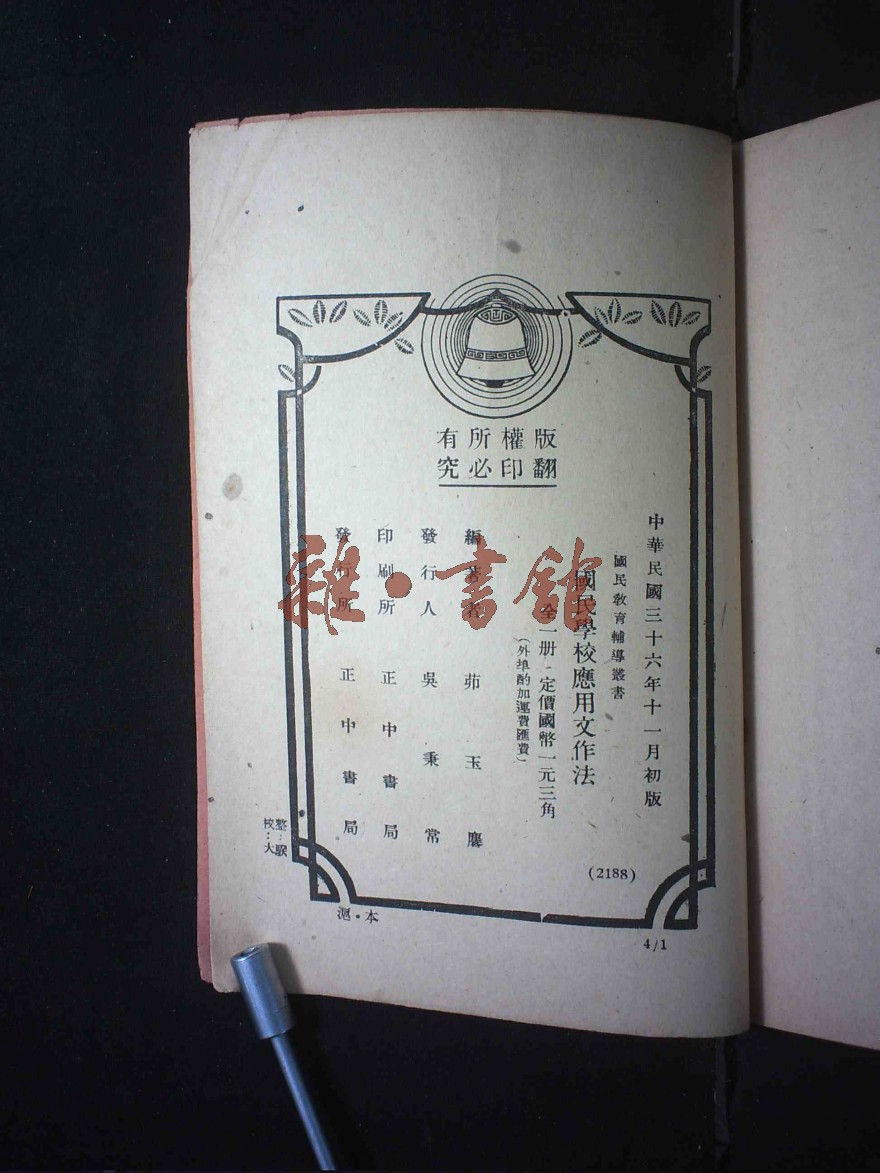 版權所有
翻印必究
中華民國三十六年十一月初版
國民教育輔導叢書
國民學校應用文作法
全一册 定價國幣一元三角
(外埠酌加運費匯費)
編著者 茆玉麐
發行人 吳秉常
印刷所 正中書局
發行所 正中書局
(2188)
整:
校:大
滬·本
4/1
雜·書館